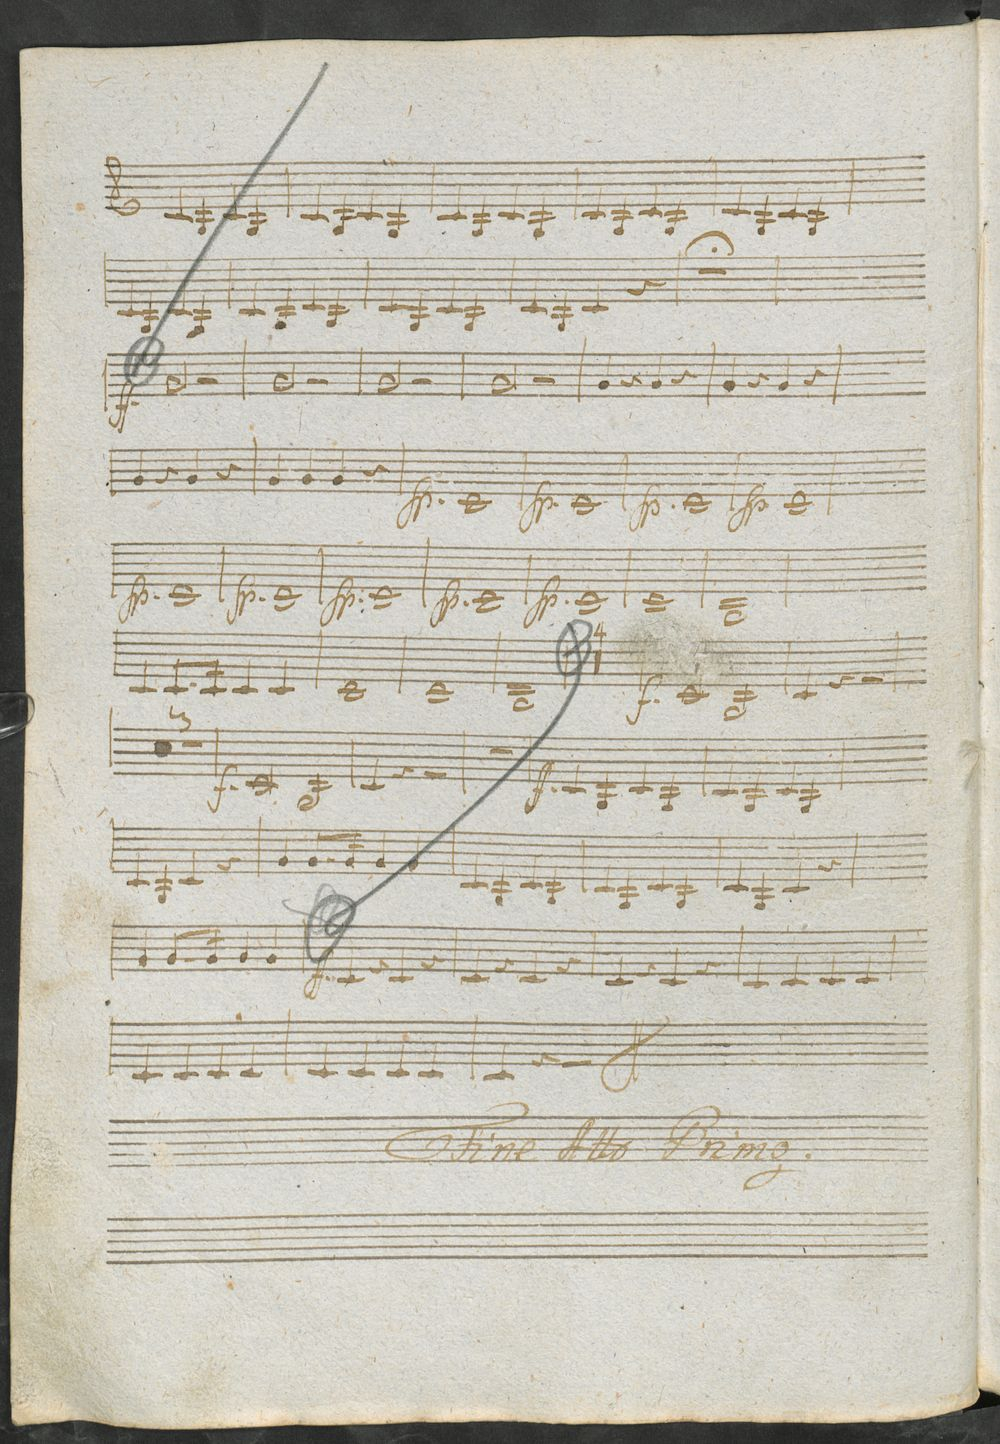 f.
fp. fp. fp. fp
fp. fp. fp: fp. fp.
4 f.
3 f. f.
f.
Fine Atto Primo.